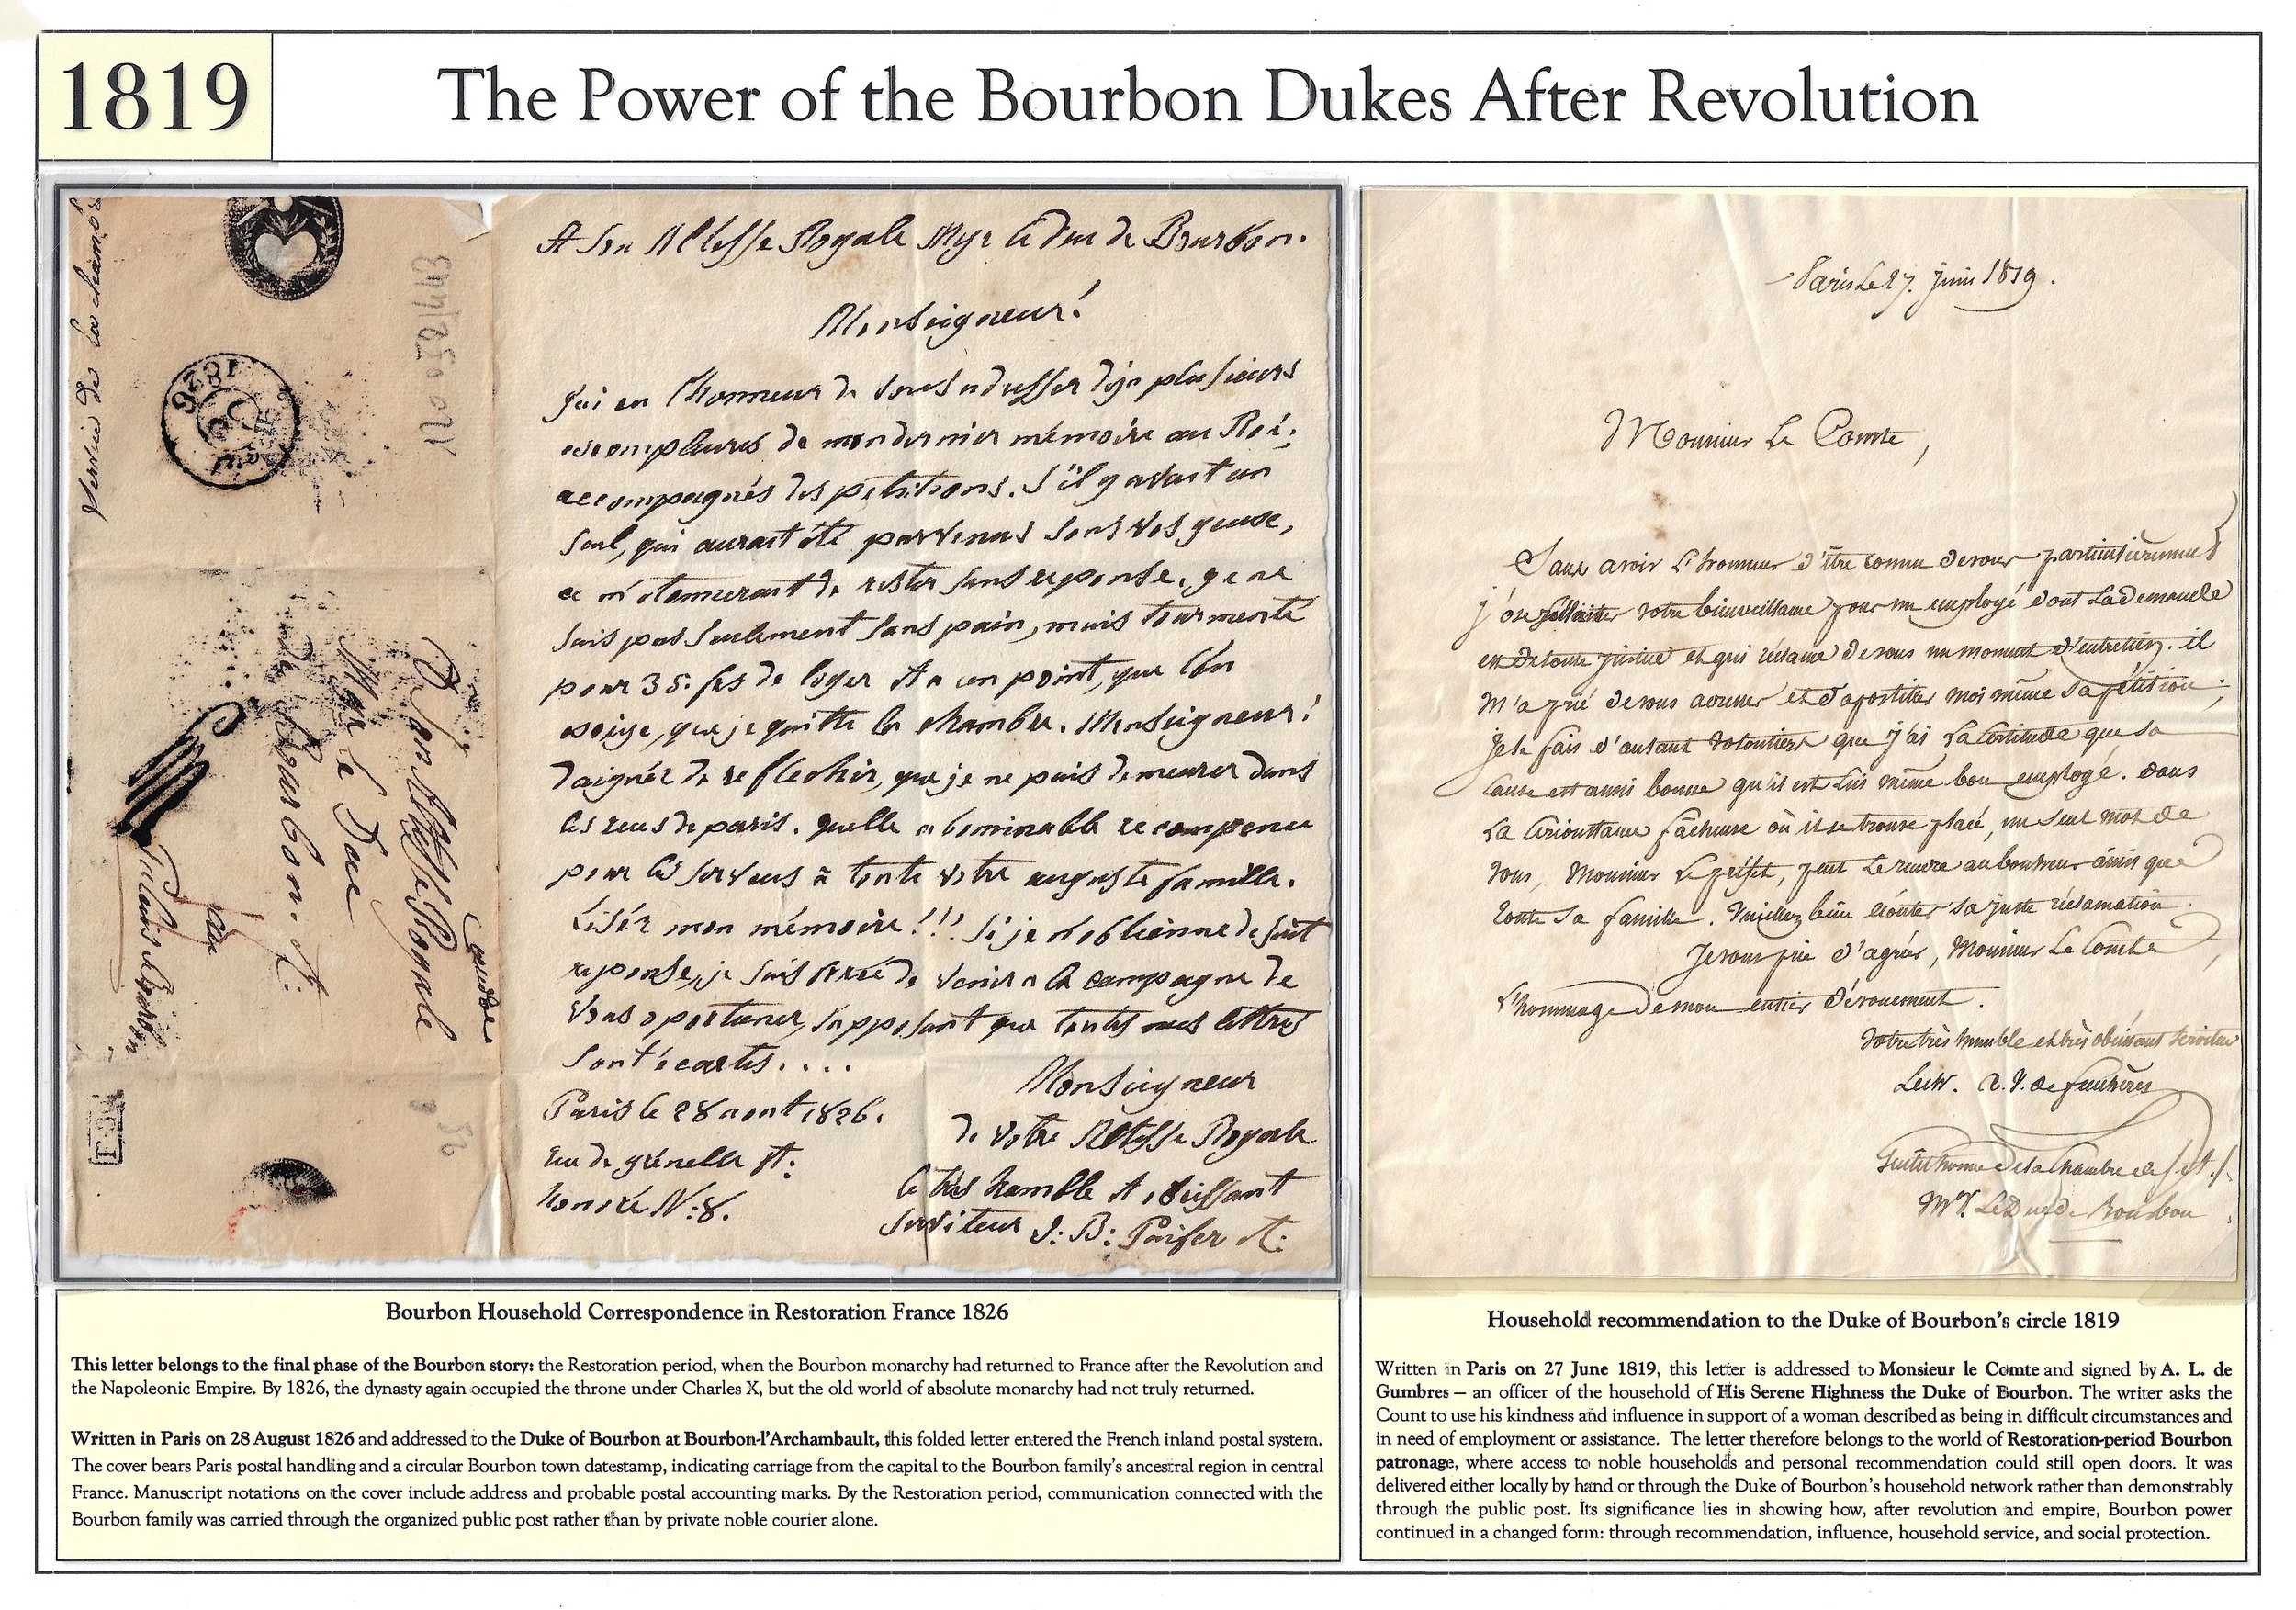 1819
The Power of the Bourbon Dukes After Revolution
Service de la chambre
1826
120 52/1413
A Son Altesse Royale
Mgr le Duc
de Bourbon.
au
Palais Bourbon
A Son Altesse Royale Mgr le duc de Bourbon.
Monseigneur!
J'ai eu l'honneur de vous adresser deja plusieurs
exemplaires de mon dernier mémoire au Roi,
accompagnés des petitions. S'il y avait un
seul, qui aurait été parvenus sous vos yeuxe,
ce m'etonnerait de rester sans reponse. je ne
suis pas seulement sans pain, mais tourmenté
pour 35 fs de loyer et a un point, que l'on
exige, que je quitte la chambre. Monseigneur!
daignéz de reflechir, que je ne puis demeurer dans
les rues de paris. quelle abominable recompense
pour les serveus à toute votre auguste famille.
Liséz mon mémoire!!! Si je n'obtienne de suit
reponse, je suis forcé de venir a la campagne de
vous oportuner, supposant que toutes mes lettres
sont écartés....
Paris le 28 aout 1826.
rue de grenelle St:
honoré N: 8.
Monseigneur
de votre Altesse Royale
le très humble et obeissant
serviteur J: B:
Paris Le 27. juin 1819.
Monsieur Le Comte,
Sans avoir L'honneur d'être connu de vous particulièrement
j'ose solliciter votre bienveillance pour un employé dont La demande
est de toute justice et qui réclame de vous un moment d'entretien. il
m'a prié de vous adresser et d'apostiller moi même sa pétition;
je le fais d'autant volontiers que j'ai La Certitude que sa
Cause est aussi bonne qu'il est Lui même bon employé. dans
La Circonstance fâcheuse où il se trouve placé, un seul mot de
vous, Monsieur Le préfet, peut Le rendre au bonheur ainsi que
toute sa famille. Veuillez bien écouter sa juste réclamation.
Je vous prie d'agréer, Monsieur Le Comte,
L'hommage de mon entier dévouement.
Votre très humble et très obéissant serviteur
Gentilhomme de la Chambre de S. A. S.
Mgr. Le Duc de Bourbon
Bourbon Household Correspondence in Restoration France 1826
This letter belongs to the final phase of the Bourbon story: the Restoration period, when the Bourbon monarchy had returned to France after the Revolution and
the Napoleonic Empire. By 1826, the dynasty again occupied the throne under Charles X, but the old world of absolute monarchy had not truly returned.
Written in Paris on 28 August 1826 and addressed to the Duke of Bourbon at Bourbon-l'Archambault, this folded letter entered the French inland postal system.
The cover bears Paris postal handling and a circular Bourbon town datestamp, indicating carriage from the capital to the Bourbon family's ancestral region in central
France. Manuscript notations on the cover include address and probable postal accounting marks. By the Restoration period, communication connected with the
Bourbon family was carried through the organized public post rather than by private noble courier alone.
Household recommendation to the Duke of Bourbon's circle 1819
Written in Paris on 27 June 1819, this letter is addressed to Monsieur le Comte and signed by A. L. de
Gumbres — an officer of the household of His Serene Highness the Duke of Bourbon. The writer asks the
Count to use his kindness and influence in support of a woman described as being in difficult circumstances and
in need of employment or assistance. The letter therefore belongs to the world of Restoration-period Bourbon
patronage, where access to noble households and personal recommendation could still open doors. It was
delivered either locally by hand or through the Duke of Bourbon's household network rather than demonstrably
through the public post. Its significance lies in showing how, after revolution and empire, Bourbon power
continued in a changed form: through recommendation, influence, household service, and social protection.